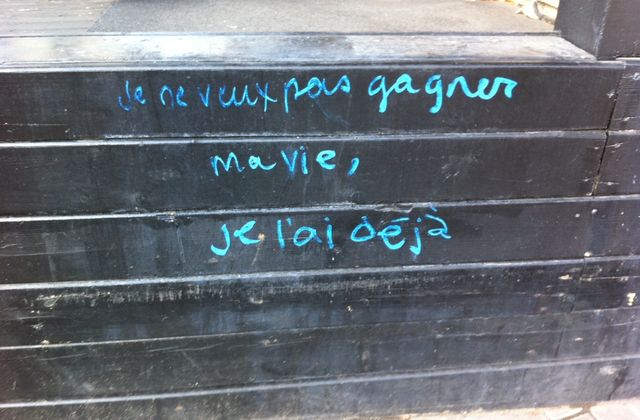 Je ne veux pas gagner
ma vie,
je l'ai déjà